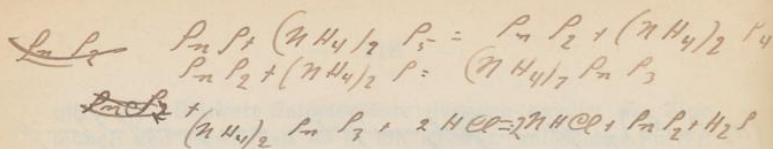 Sn S2 Sn S + (NH4)2 S5 = Sn S2 + (NH4)2 S4
Sn S2 + (NH4)2 S = (NH4)2 Sn S3
Sn S2 +
(NH4)2 Sn S3 + 2 HCl = 2NHCl + Sn S2 + H2S